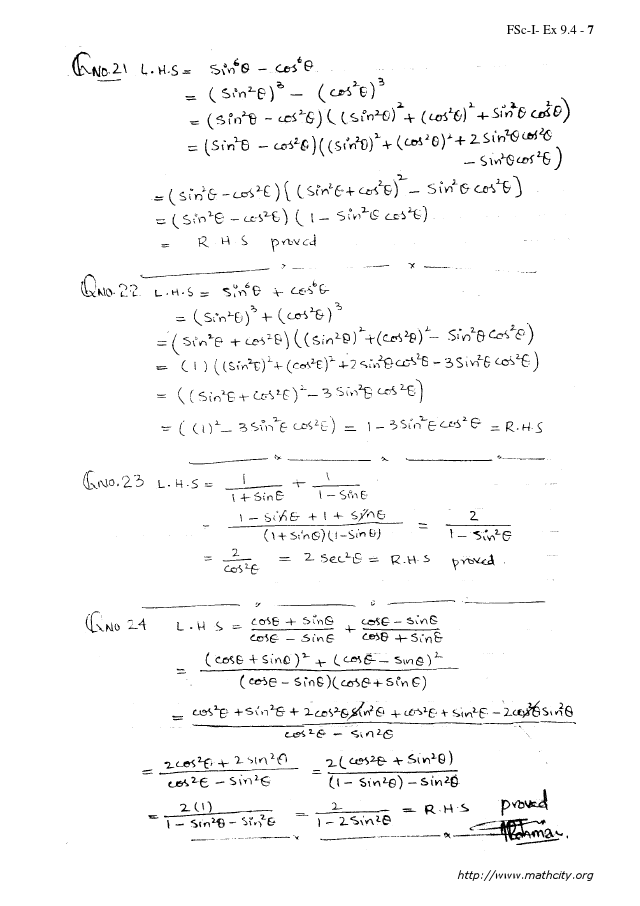 FSc-I- Ex 9.4 - 7
QNo.21 L.H.S = Sin⁶θ − cos⁶θ
= (Sin²θ)³ − (cos²θ)³
= (Sin²θ − cos²θ)((Sin²θ)² + (cos²θ)² + Sin²θ cos²θ)
= (Sin²θ − cos²θ)((Sin²θ)² + (cos²θ)² + 2Sin²θcos²θ
− Sin²θcos²θ)
= (Sin²θ − cos²θ)((Sin²θ + cos²θ)² − Sin²θ cos²θ)
= (Sin²θ − cos²θ)(1 − Sin²θ cos²θ)
= R H S proved
QNo.22 L.H.S = Sin⁶θ + cos⁶θ
= (Sin²θ)³ + (cos²θ)³
= (Sin²θ + cos²θ)((Sin²θ)² + (cos²θ)² − Sin²θ Cos²θ)
= (1)((Sin²θ)² + (cos²θ)² + 2Sin²θcos²θ − 3Sin²θ cos²θ)
= ((Sin²θ + cos²θ)² − 3Sin²θ cos²θ)
= ((1)² − 3Sin²θ cos²θ) = 1 − 3Sin²θcos²θ = R.H.S
QNo.23 L.H.S = 1/(1 + Sinθ) + 1/(1 − Sinθ)
= (1 − Sinθ + 1 + Sinθ)/((1 + Sinθ)(1 − Sinθ)) = 2/(1 − Sin²θ)
= 2/cos²θ = 2 Sec²θ = R.H.S proved.
QNo 24 L.H S = (cosθ + Sinθ)/(cosθ − Sinθ) + (cosθ − Sinθ)/(cosθ + Sinθ)
= ((cosθ + Sinθ)² + (cosθ − Sinθ)²)/((cosθ − Sinθ)(cosθ + Sinθ))
= (cos²θ + Sin²θ + 2cos²θSin²θ + cos²θ + Sin²θ − 2cos²θSin²θ)/(cos²θ − Sin²θ)
= (2cos²θ + 2Sin²θ)/(cos²θ − Sin²θ) = 2(cos²θ + Sin²θ)/((1 − Sin²θ) − Sin²θ)
= 2(1)/(1 − Sin²θ − Sin²θ) = 2/(1 − 2Sin²θ) = R.H.S proved
http://www.mathcity.org